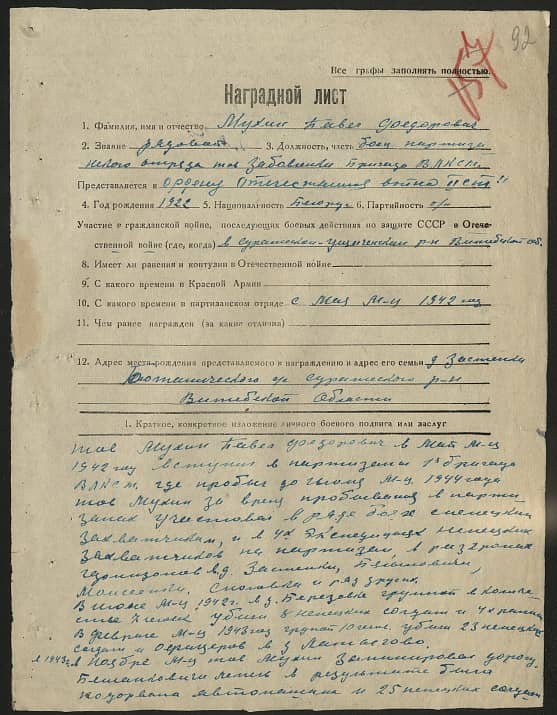 92
Все графы заполнять полностью.
Наградной лист
1. Фамилия, имя и отчество Мухин Павел Фоедорович
2. Звание рядовой 3. Должность, часть боец партиза
нского отряда тов Бригада ВЛКСМ
Представляется к Ордену Отечественная война II ст"
4. Год рождения 1922 5. Национальность Белорус 6. Партийность б/п
Участие в гражданской войне, последующих боевых действиях по защите СССР в Отече-
ственной войне (где, когда) в р-н Витебской об.
8. Имеет ли ранения и контузии в Отечественной войне
9. С какого времени в Красной Армии
10. С какого времени в партизанском отряде с Мая М-ц 1942 год
11. Чем ранее награжден (за какие отличия)
12. Адрес места рождения представляемого к награждению и адрес его семьи д Застенки
с/с Суражского р-на
Витебской Области
1. Краткое, конкретное изложение личного боевого подвига или заслуг
тов Мухин Павел Фоедорович в Мае М-ц
1942 году вступил в партизаны 1й бригада
ВЛКСМ, где пробыл до М-ц 1944 года
тов Мухин за время пробывания в парти
занах участвовал в ряде боях с немецким
захватчиками, и в 4х немецких
захватчиков на партизан, в разгромах
гарнизонов в д Застенки,
и ряд других.
В июне М-ц 1942г. в д. Березовке группой в количе
стве 7 человек убили 8 немецких солдат и 4 ранили
В феврале М-ц 1943 год группой 10 чел. убили 23 немецких
солдат и офицеров в д
в 1943г. в Ноябре М-ц тов Мухин заминировал дорогу
в результате была
подорвана автомашина и 25 немецких солдат